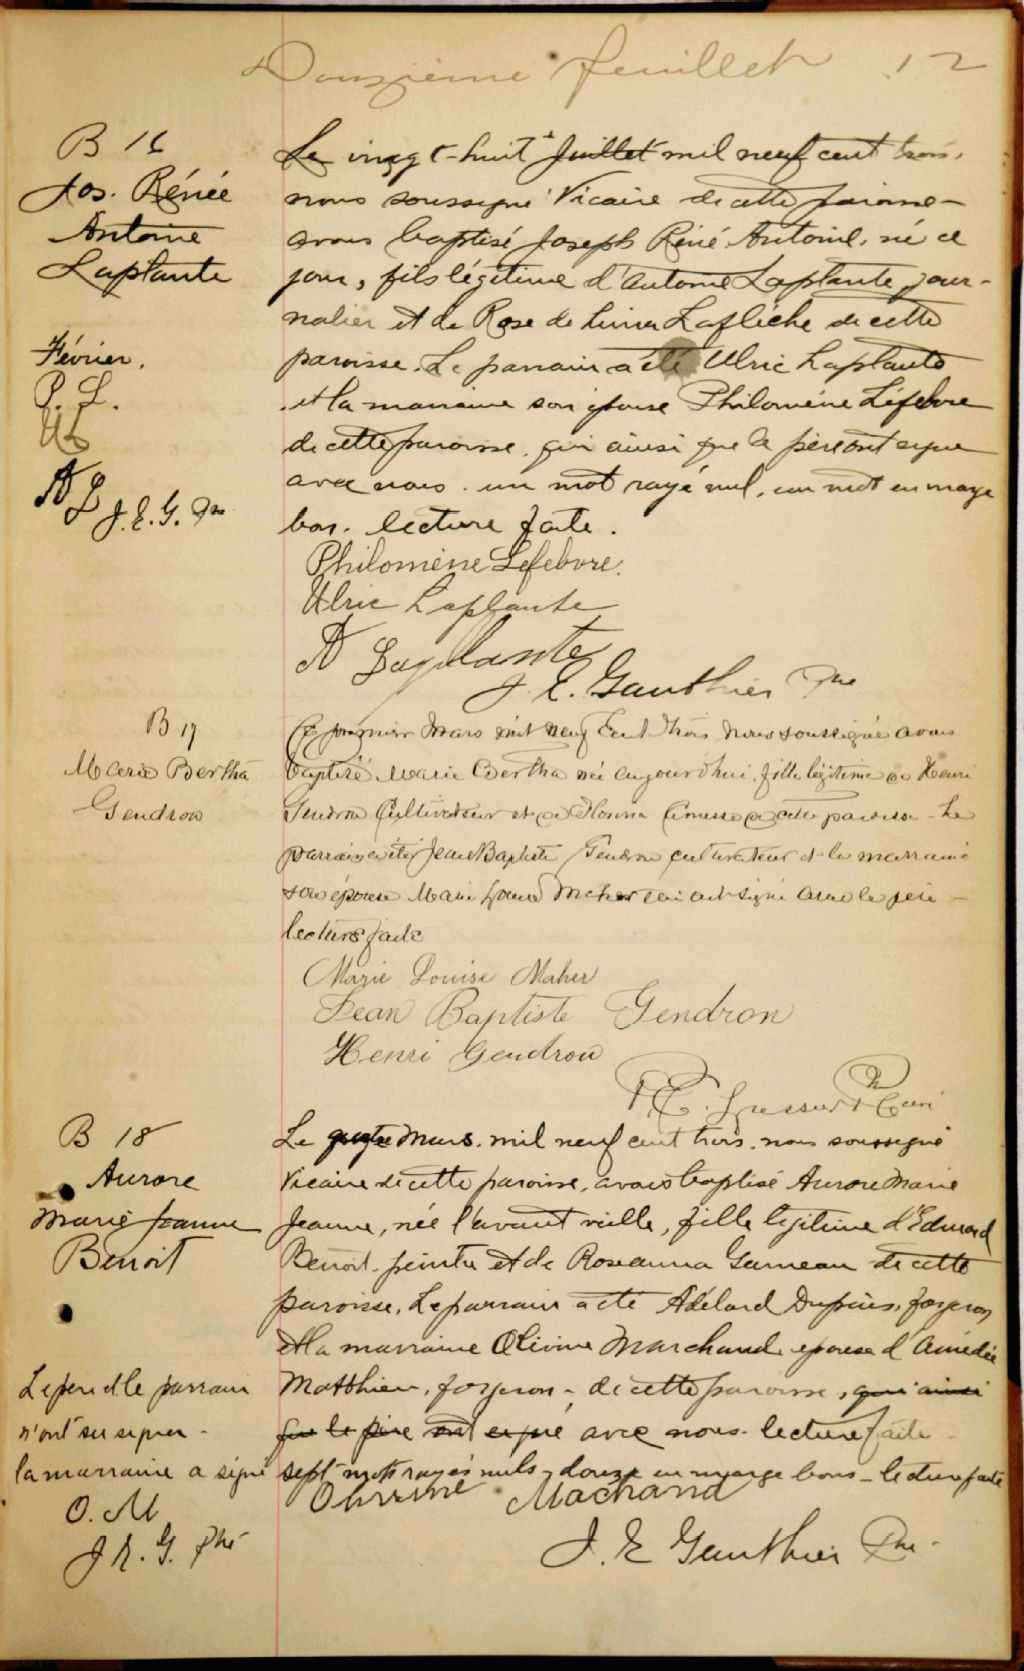 Douzième feuillet 12
B 16
Jos. Rénée
Antoine
Laplante
Février.
P. L.
U L
A L J. E. G. Ptre
Le vingt-huit Juillet mil neuf cent trois,
nous soussigné Vicaire de cette paroisse
avons baptisé Joseph Réné Antoine, né ce
jour, fils légitime d'Antoine Laplante, jour-
nalier et de Rose de Lima Laflèche de cette
paroisse. Le parrain a été Ulric Laplante
et la marraine son épouse Philomène Léfebvre
de cette paroisse, qui ainsi que le père ont signé
avec nous. un mot rayé nul, un mot en marge
bon. lecture faite.
Philomène Lefebvre.
Ulric Laplante
A Laplante
J. E. Gauthier Ptre
B 17
Marie Bertha
Gendron
Le premier Mars mil neuf Cent trois Nous soussigné avons
baptisé Marie Bertha née aujourd'hui fille légitime de Henri
Gendron Cultivateur et de de cette paroisse Le
parrain a été Jean Baptiste Gendron cultivateur et la marraine
son épouse Marie Louise Maher qui ont signé avec le père
lecture faite
Marie Louise Maher
Jean Baptiste Gendron
Henri Gendron
Curé
B 18
Aurore
Marie Jeanne
Benoit
Le père et le parrain
n'ont su signer.
la marraine a signé
O. M
J. E. G. Ptre
Le quatre Mars mil neuf cent trois, nous soussigné
Vicaire de cette paroisse, avons baptisé Aurore Marie
Jeanne, née l'avant veille, fille légitime d'Edward
Benoit, peintre et de Roseanna Garneau de cette
paroisse. Le parrain a été Adélard Dupuis, forgeron
et la marraine Olivine Marchand épouse d'Amédée
Matthieu, forgeron de cette paroisse, qui ainsi
que le père ont signé avec nous. lecture faite
sept mots rayés nuls, douze en marge bons - lecture faite
Olivine Machand
J. E Gauthier Ptre